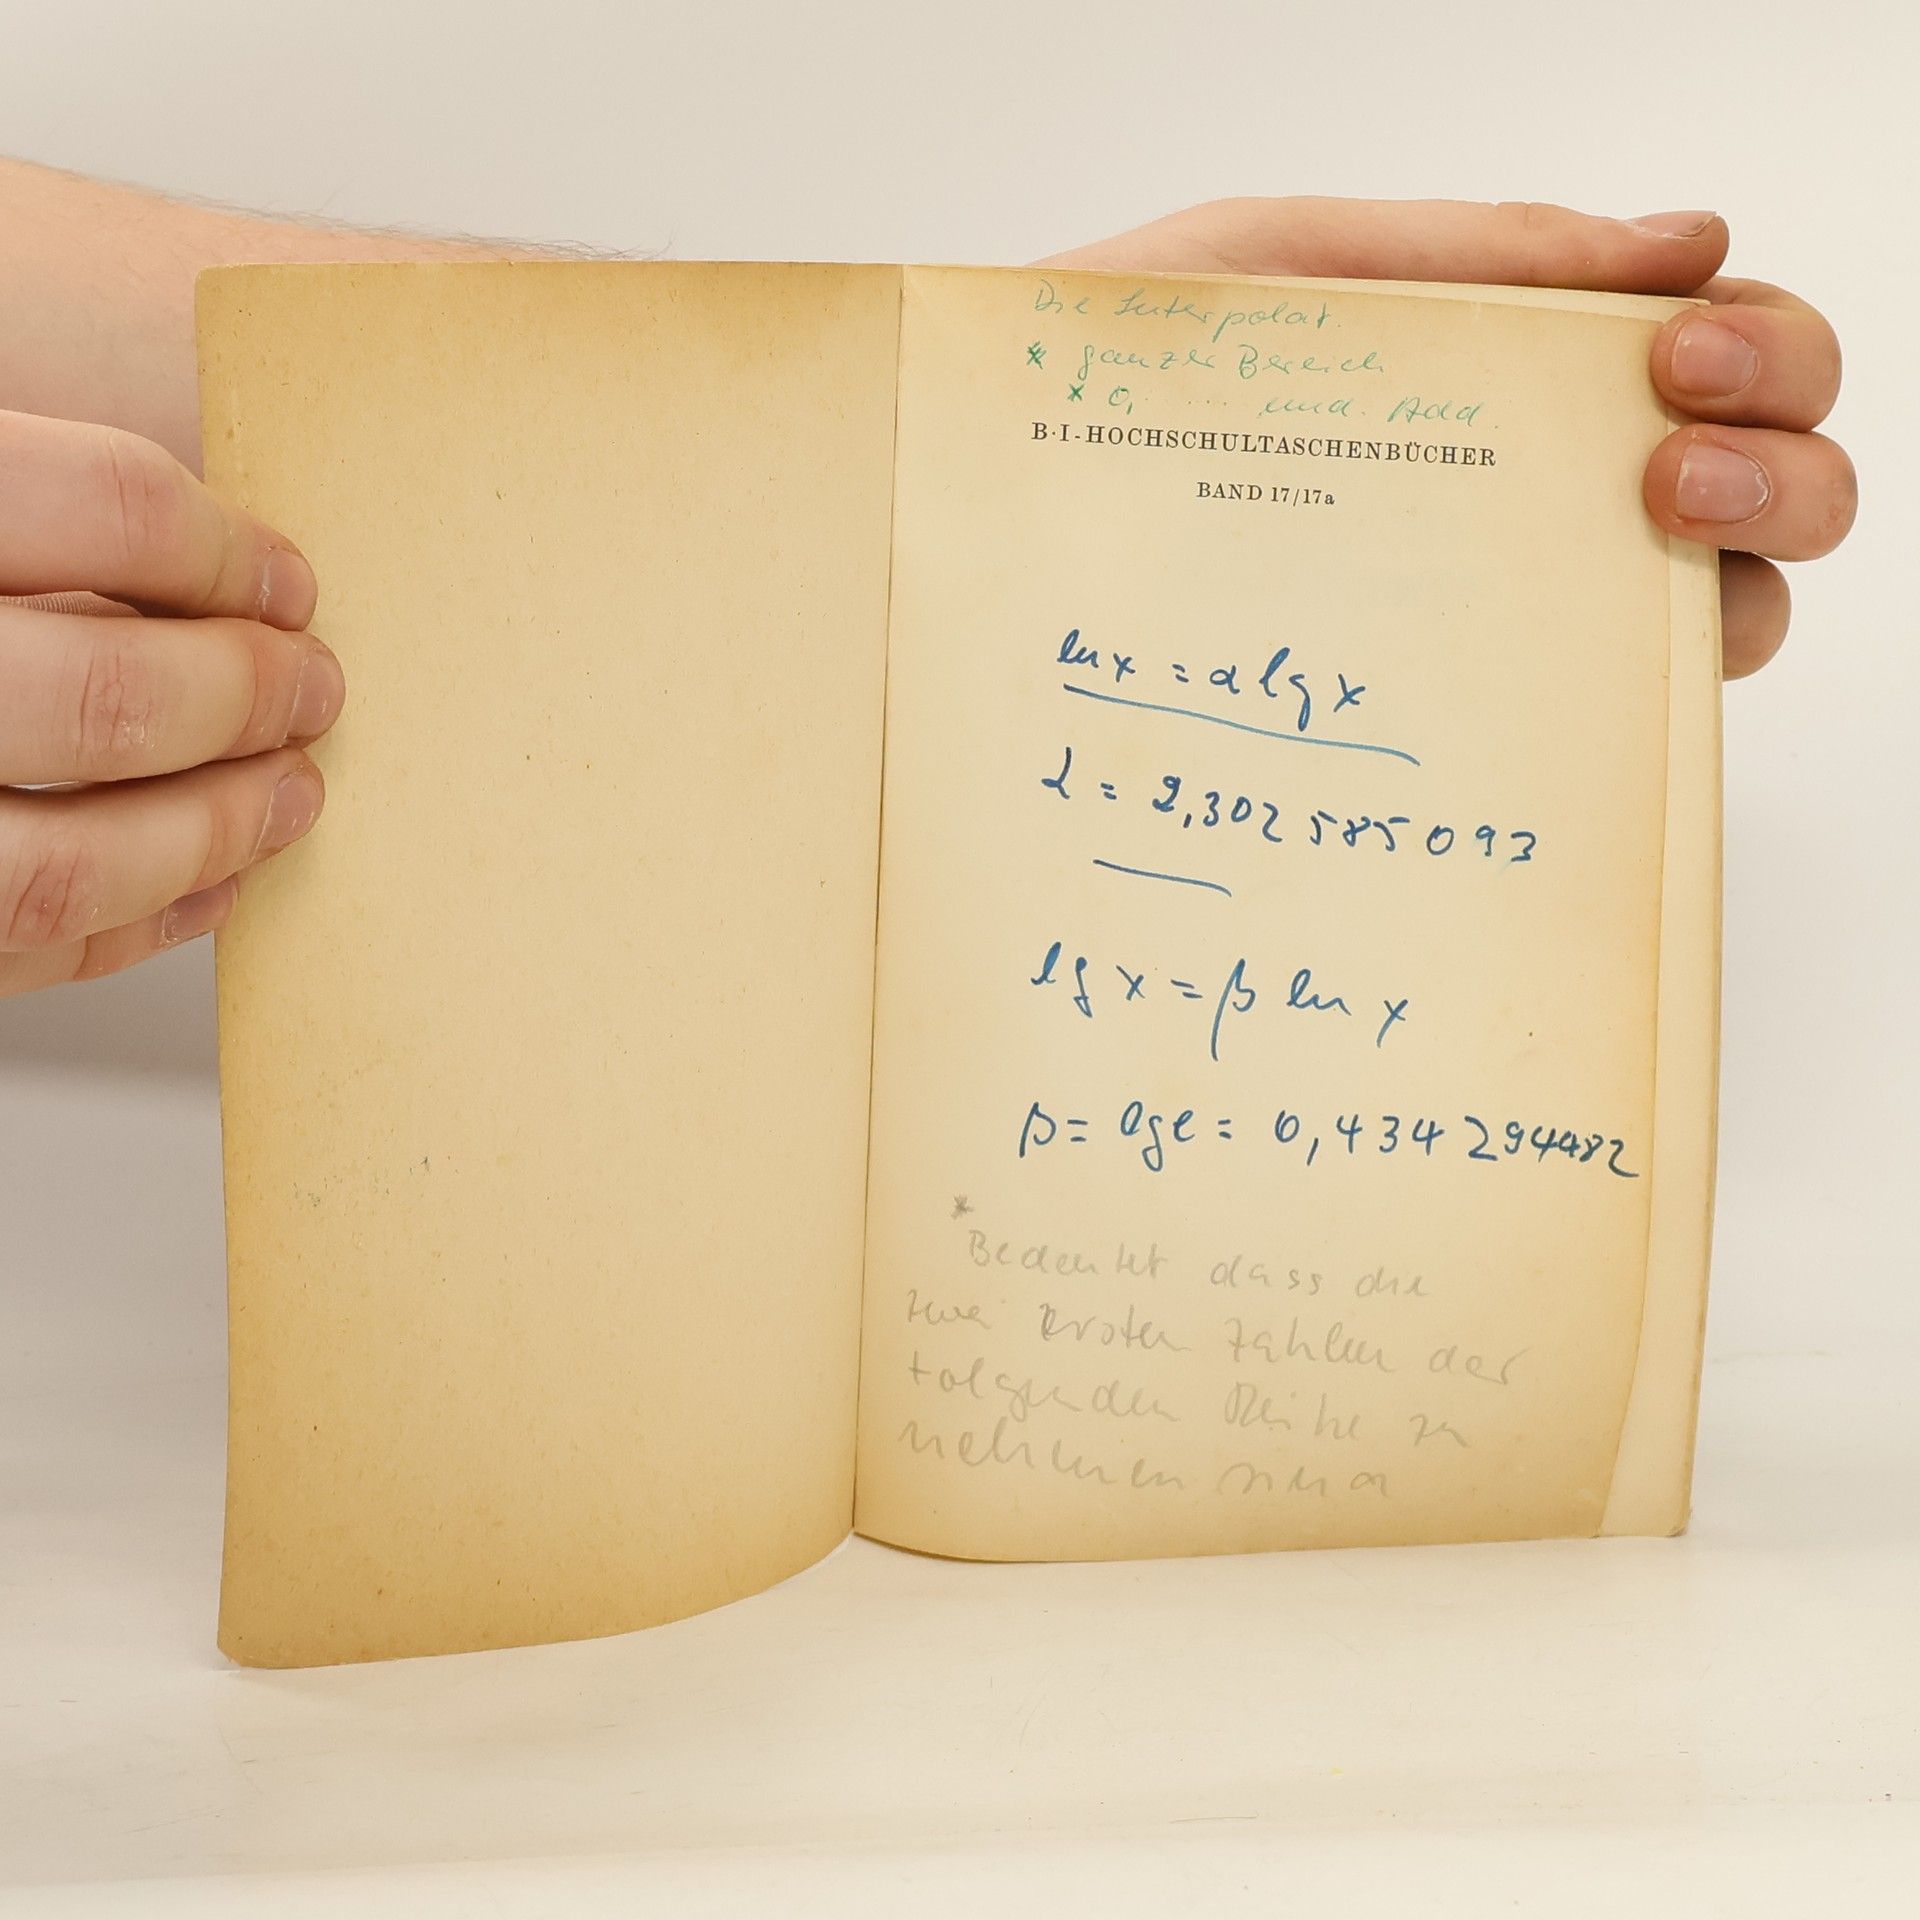 Die Interpolat.
* ganzer Bereich
* 0, .... und. Add.
B·I-HOCHSCHULTASCHENBÜCHER
BAND 17/17a
ln x = α lg x
α = 2,302 585 093
lg x = β ln x
β = lg e = 0,434 294482
*
Bedeutet dass die
zwei Ersten Zahlen der
folgenden Reihe zu
nehmen sind